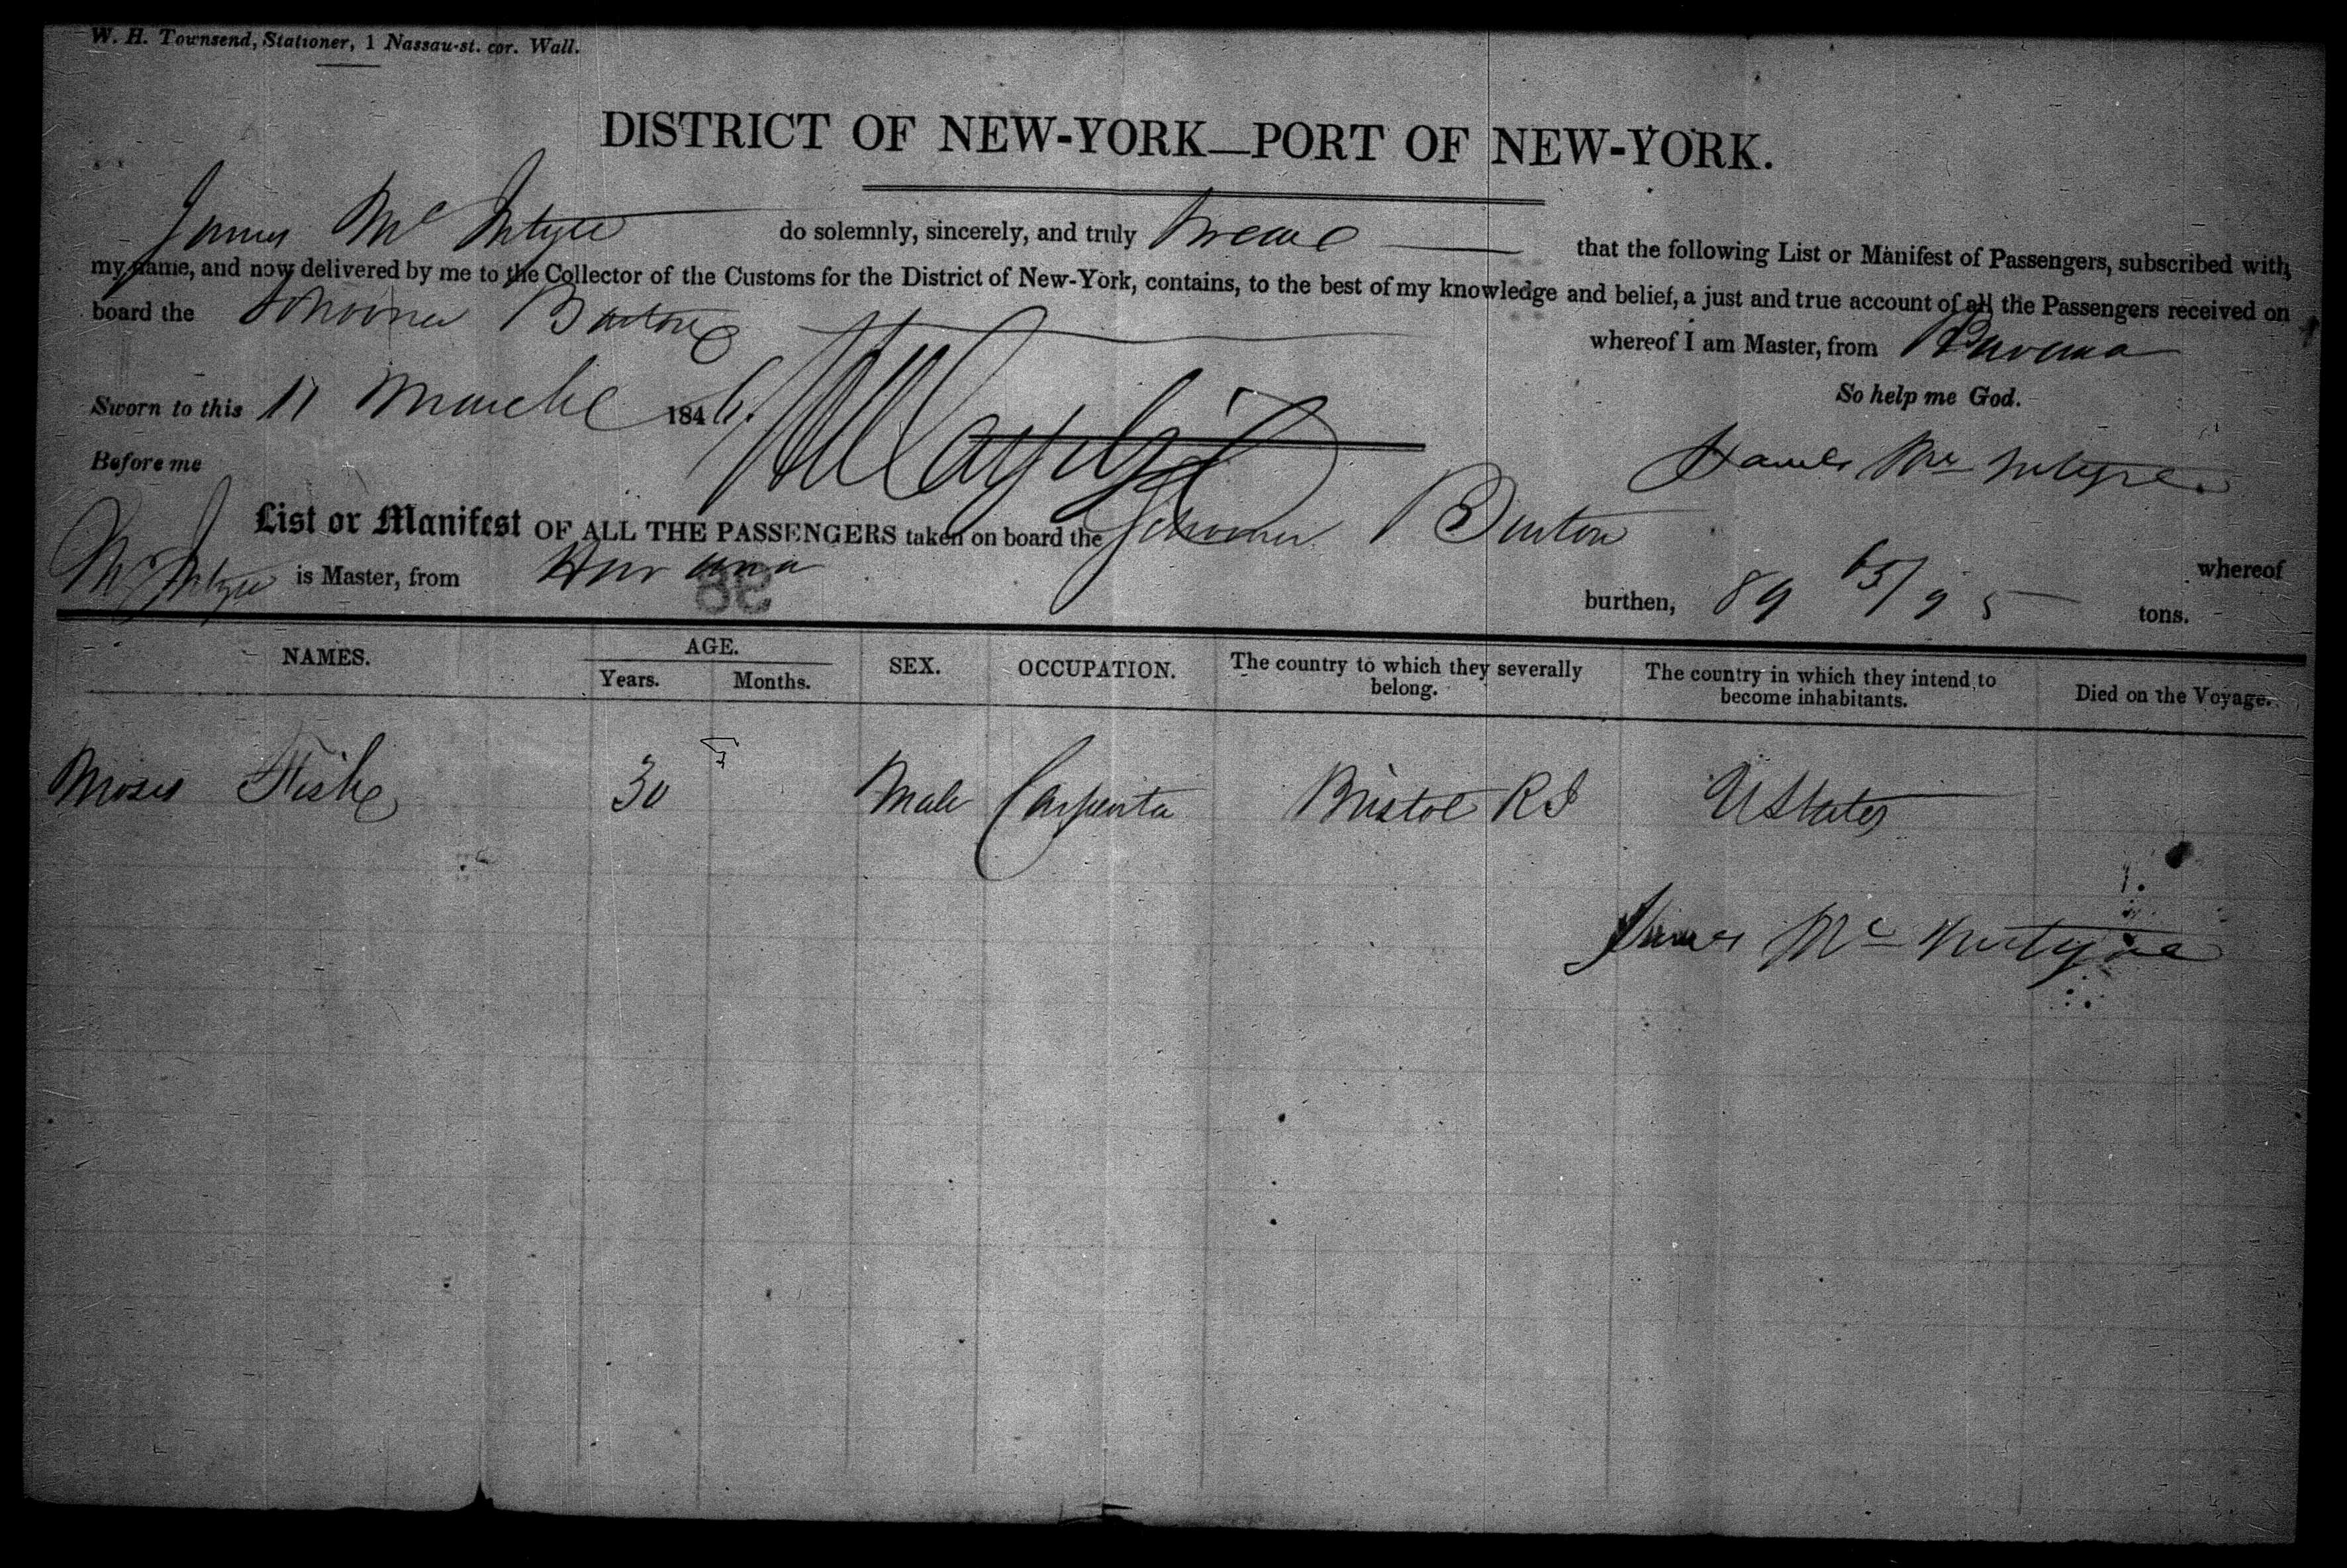 W. H. Townsend, Stationer, 1 Nassau-st. cor. Wall.
DISTRICT OF NEW-YORK—PORT OF NEW-YORK.
James Mc Intyre do solemnly, sincerely, and truly Swear that the following List or Manifest of Passengers, subscribed with
my name, and now delivered by me to the Collector of the Customs for the District of New-York, contains, to the best of my knowledge and belief, a just and true account of all the Passengers received on
board the Schooner whereof I am Master, from Havana
So help me God.
Sworn to this 11 March 1846.
James Mc Intyre
Before me
List or Manifest OF ALL THE PASSENGERS taken on board the Schooner whereof
Mc Intyre is Master, from Havana burthen, 89 65/95 tons.
98
NAMES. AGE. SEX. OCCUPATION. The country to which they severally belong. The country in which they intend to become inhabitants. Died on the Voyage.
Years. Months.
Moses Fiske 30 Male Carpenter Bristol RI UStates
James Mc Intyre